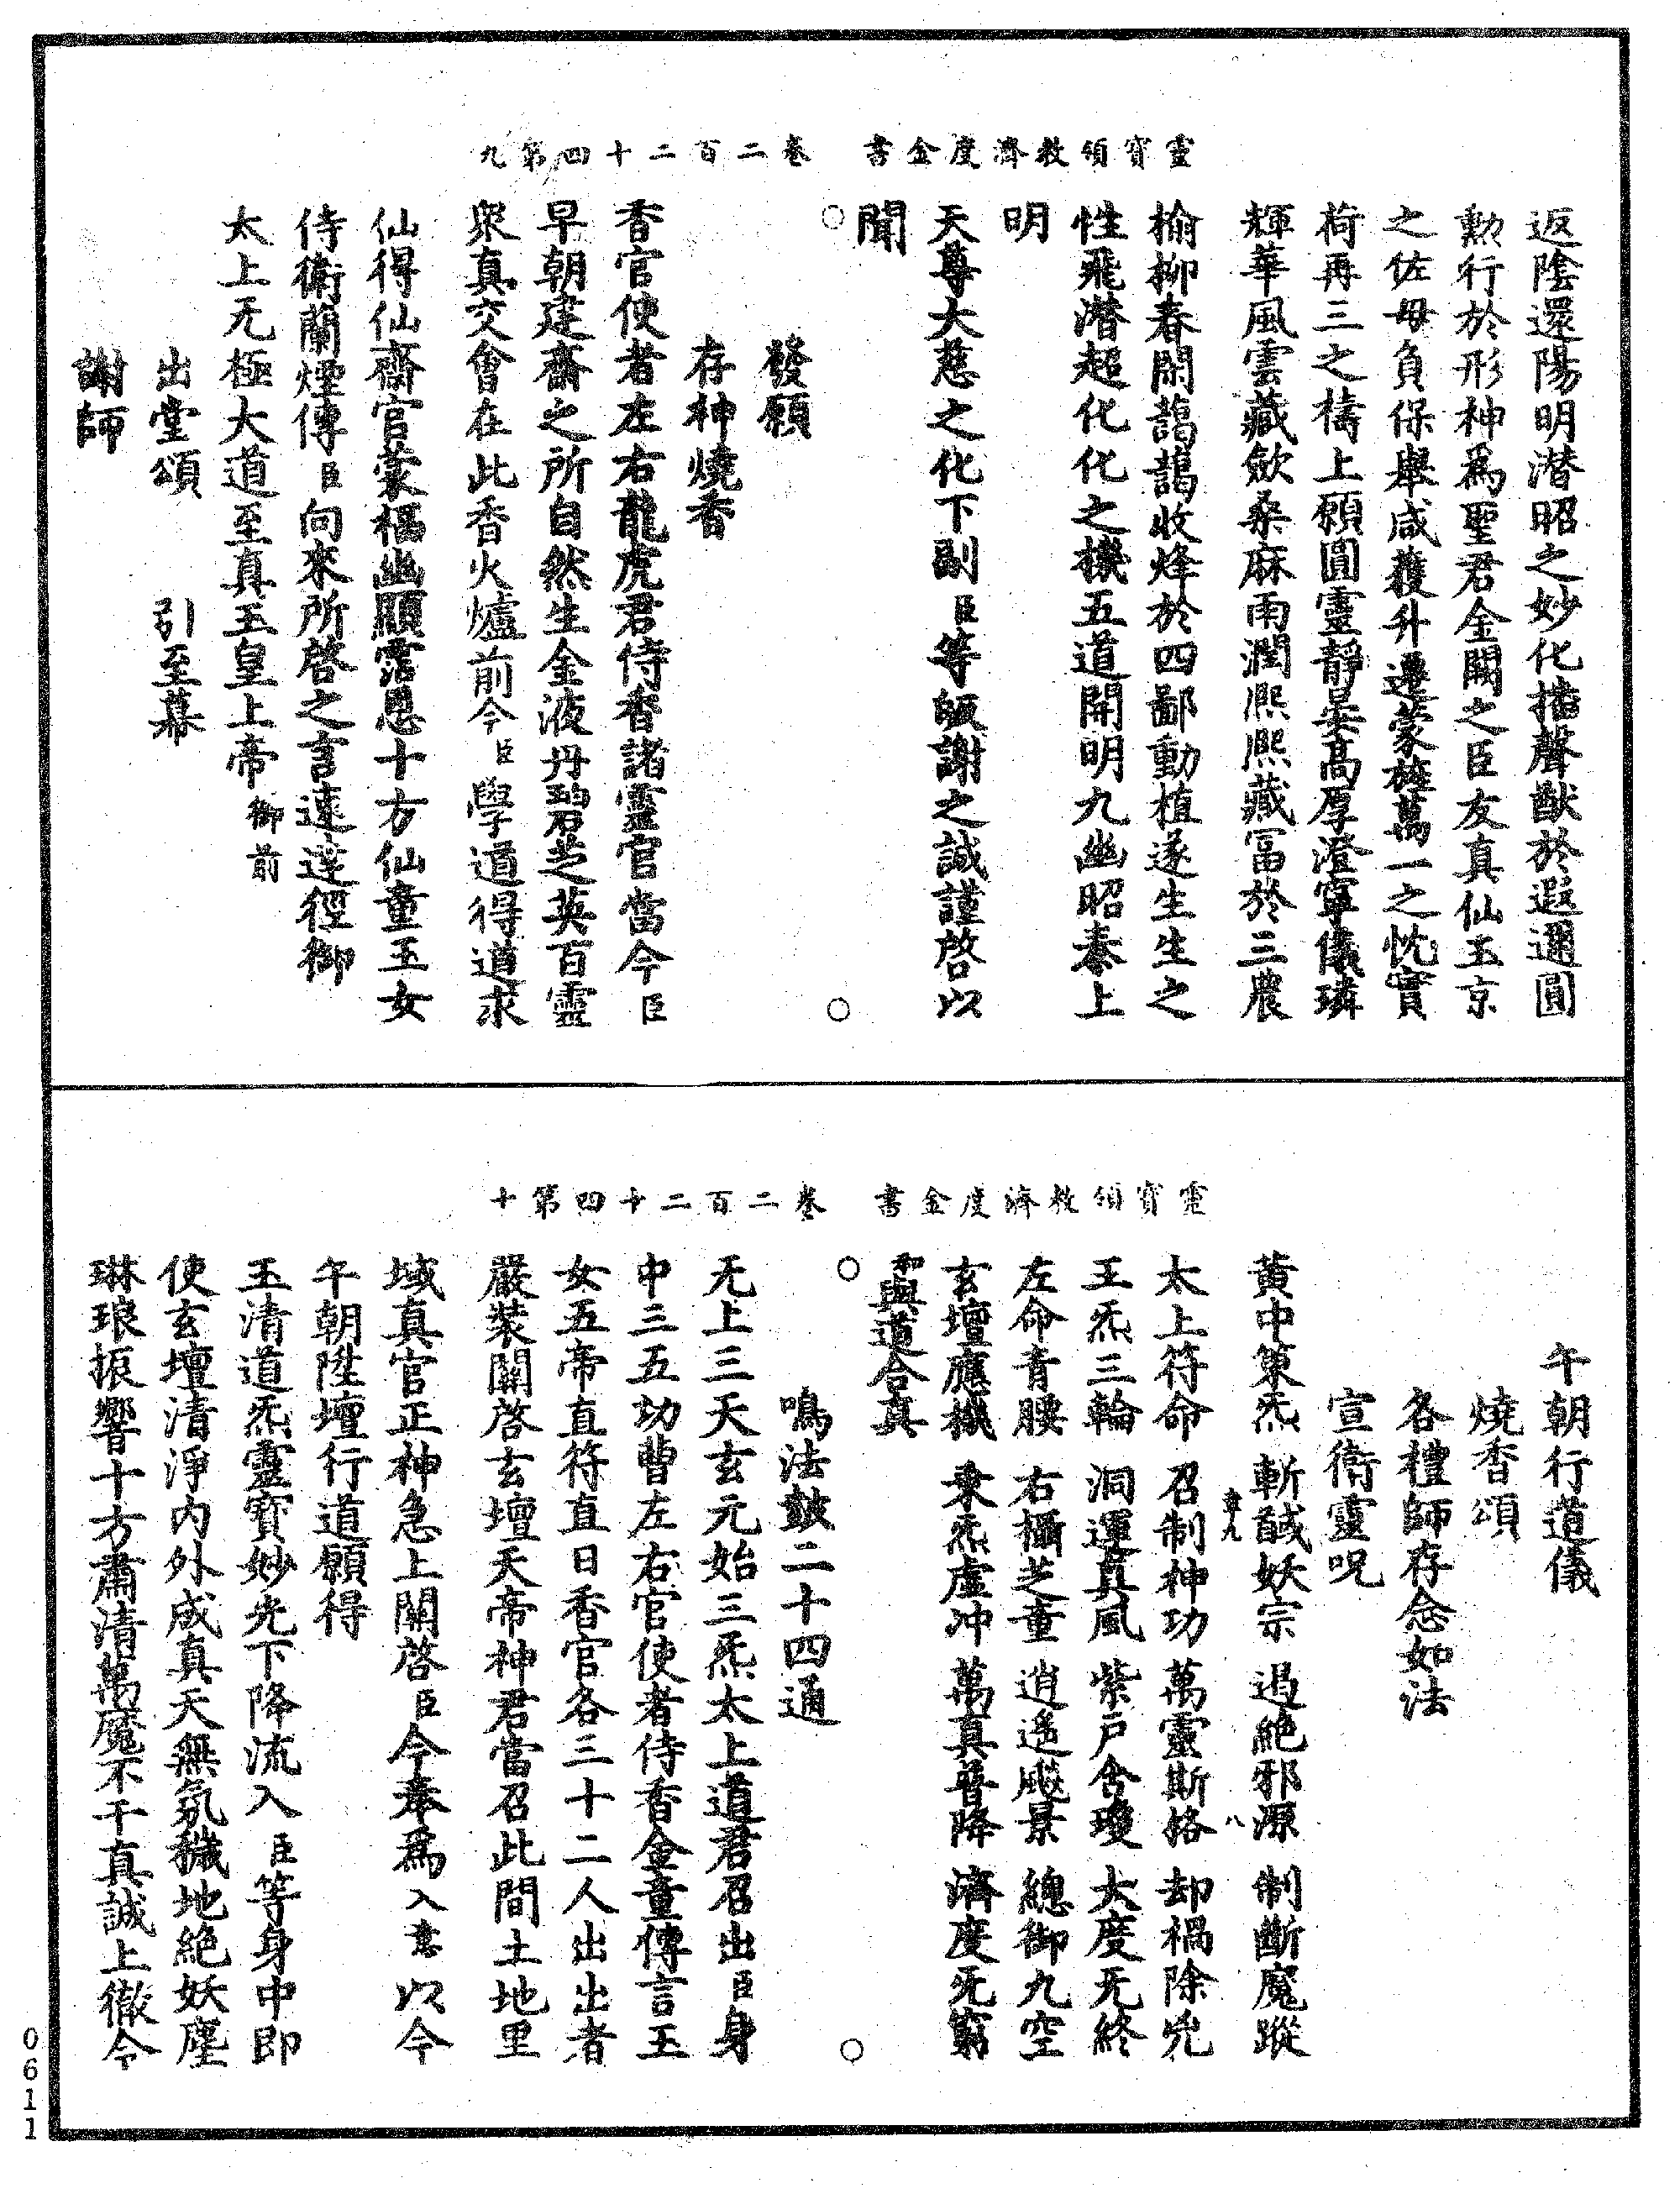 靈寶領教濟度金書　卷二百二十四第九
返陰還陽明潛昭之妙化播聲猷於遐邇圓
勳行於形神爲聖君金闕之臣友真仙玉京
之佐毋負保舉咸獲升遷蒙旌萬一之忱實
荷再三之禱上願圓靈靜晏高厚澄寧儀璘
輝華風雲藏歛桑麻雨潤熙熙藏富於三農
榆柳春閑藹藹收烽於四鄙動植遂生生之
性飛潛超化化之機五道開明九幽昭泰上
明
天尊大慈之化下副臣等皈謝之誠謹啓以
聞
發願
存神燒香
香官使者左右龍虎君侍香諸靈官當令臣
早朝建齋之所自然生金液丹碧芝英百靈
衆真交會在此香火爐前令臣學道得道求
仙得仙齋官蒙福幽顯霑恩十方仙童玉女
侍衛蘭煙傳臣向來所啓之言速達徑御
太上无極大道至真玉皇上帝御前
出堂頌　引至幕
謝師
靈寶領教濟度金書　卷二百二十四第十
午朝行道儀
燒香頌
各禮師存念如法
宣衛靈呪
黃中策炁　斬馘妖宗　遏絕邪源　制斷魔蹤
章九　八
太上符命　召制神功　萬靈斯恪　却禍除兇
王炁三輪　洞運真風　紫戶含瓊　大度无終
左命青腰　右攝芝童　逍遥飈景　總御九空
玄壇應機　秉炁虛冲　萬真普降　濟度无窮
和與道合真
鳴法鼓二十四通
无上三天玄元始三炁太上道君召出臣身
中三五功曹左右官使者侍香金童傳言玉
女五帝直符直日香官各三十二人出出者
嚴裝關啓玄壇天帝神君當召此間土地里
域真官正神急上關啓臣今奉爲入意以今
午朝陞壇行道願得
玉清道炁靈寶妙光下降流入臣等身中即
使玄壇清淨内外成真天無氛穢地絕妖塵
琳琅振響十方肅清萬魔不干真誠上徹令
0611